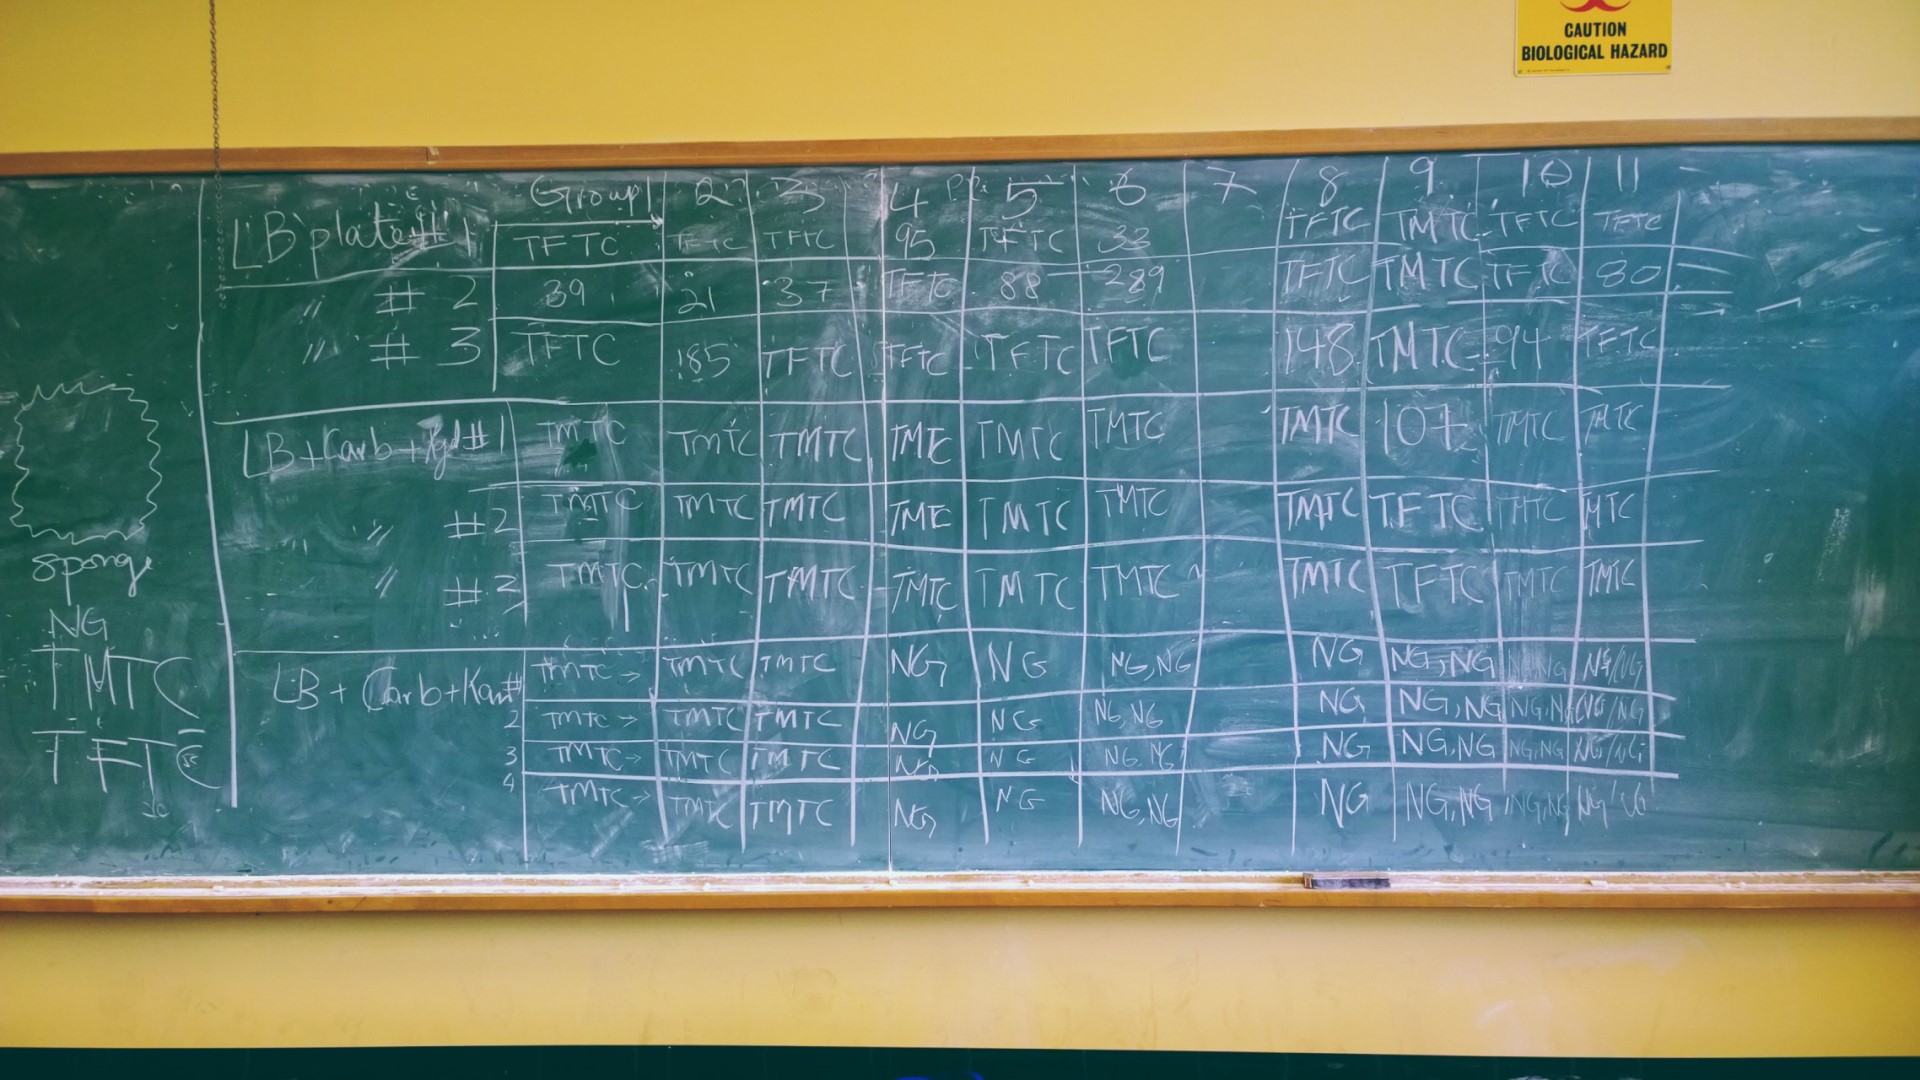 CAUTION
BIOLOGICAL HAZARD
Group 1 2 3 4 5 6 7 8 9 10 11
LB plate #1 TFTC TFTC TFTC 95 TFTC 33 TFTC TMTC TFTC TFTC
" #2 39 21 37 TFTC 88 289 TFTC TMTC TFTC 80
" #3 TFTC 185 TFTC TFTC TFTC TFTC 148 TMTC 94 TFTC
LB+Carb+ #1 TMTC TMTC TMTC TMTC TMTC TMTC TMTC TMTC TMTC
" #2 TMTC TMTC TMTC TMTC TMTC TMTC TMTC TFTC TMTC TMTC
" #3 TMTC TMTC TMTC TMTC TMTC TMTC TMTC TFTC TMTC TMTC
LB + Carb+Kan# TMTC → TMTC TMTC NG NG NG,NG NG NG,NG NG,NG NG/NG
2 TMTC → TMTC TMTC NG NG NG,NG NG NG,NG NG,NG NG/NG
3 TMTC → TMTC TMTC NG NG NG,NG NG NG,NG NG,NG NG/NG
4 TMTC → TMTC TMTC NG NG NG,NG NG NG,NG NG,NG NG/NG
sponge
NG
TMTC
TFTC